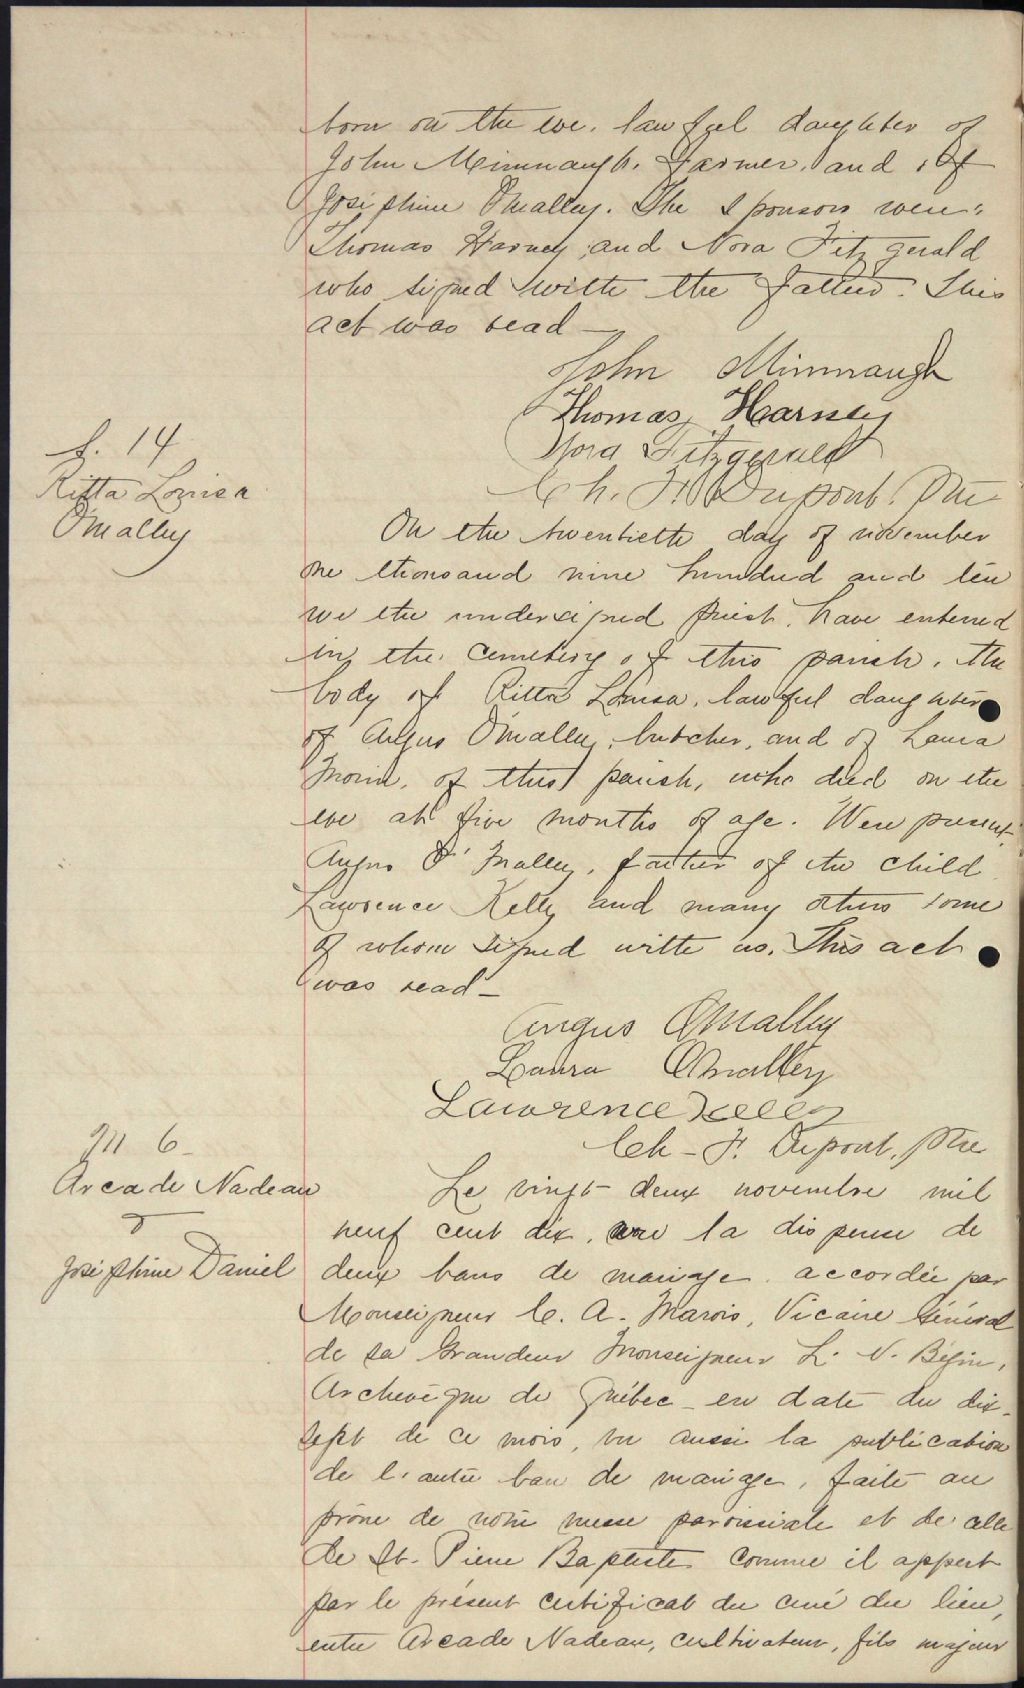 born on the eve, lawful daughter of
John Mimnaugh, Farmer, and of
Josephine O'malley. The sponsors were:
Thomas Harney and Nora Fitzgerald
who signed with the father. This
act was read —
John Mimnaugh
Thomas Harney
Nora Fitzgerald
Ch. F. Dupont. Ptre
S. 14
Ritta Louisa
O'malley
On the twentieth day of november
one thousand nine hundred and ten
we the undersigned priest, have enterred
in the cemetery of this parish, the
body of Ritta Louisa, lawful daughter
of Angus O'malley, butcher, and of Laura
Morin, of this parish, who died on the
eve at five months of age. Were present,
Angus O'Malley, father of the child
Lawrence Kelly and many others some
of whom signed with us. This act
was read —
Angus OMalley
Laura OMalley
Lawrence Kelley
Ch - F. Dupont, ptre
M 6 -
Arcade Nadeau
&
Joséphine Daniel
Le vingt deux novembre mil
neuf cent dix, vu la dispense de
deux bans de mariage accordée par
Monseigneur C. A. Marois, Vicaire Général
de sa Grandeur Monseigneur L. N. Bégin,
Archevêque de Québec en date du dix-
sept de ce mois, vu aussi la publication
de l'autre ban de mariage, faite au
prône de notre messe paroissiale et de celle
de St. Pierre Baptiste comme il appert
par le présent certificat du curé du lieu,
entre Arcade Nadeau, cultivateur, fils majeur